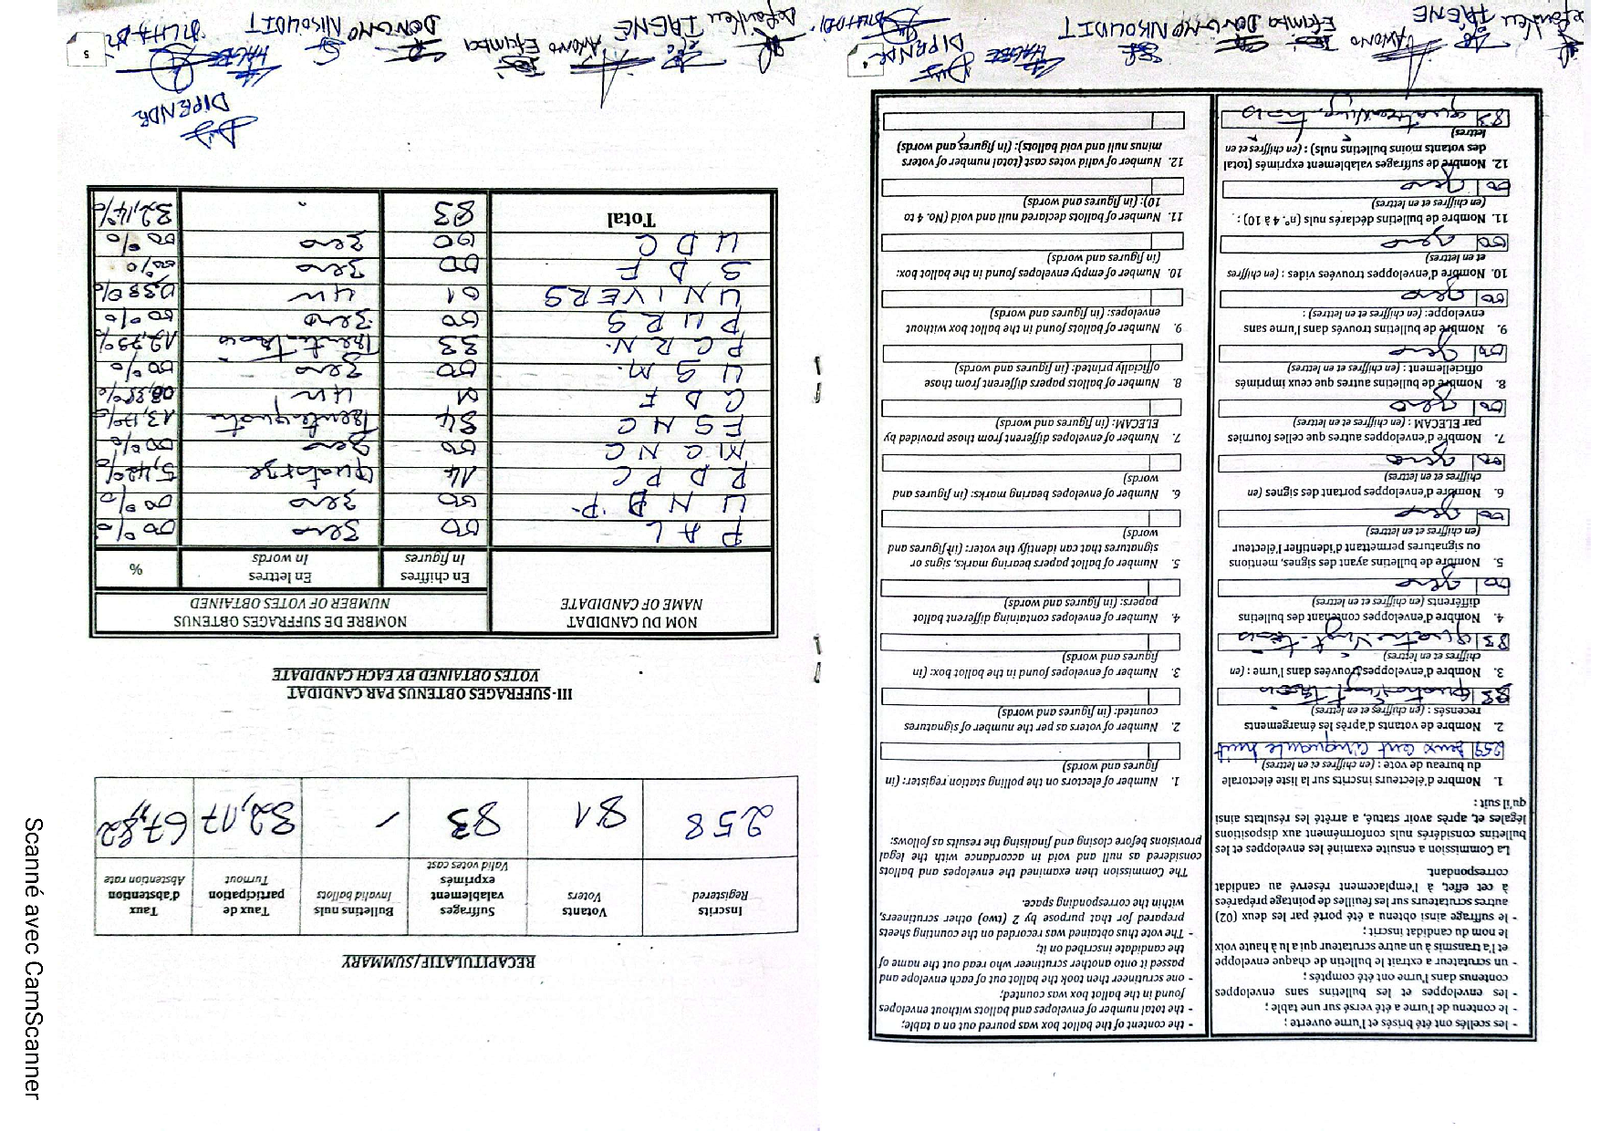 - les scellés ont été brisés et l'urne ouverte ;
- le contenu de l'urne a été versé sur une table ;
- les enveloppes et les bulletins sans enveloppes
contenus dans l'urne ont été comptés ;
- un scrutateur a extrait le bulletin de chaque enveloppe
et l'a transmis à un autre scrutateur qui a lu à haute voix
le nom du candidat inscrit ;
- le suffrage ainsi obtenu a été porté par les deux (02)
autres scrutateurs sur les feuilles de pointage préparées
à cet effet, à l'emplacement réservé au candidat
correspondant.
La Commission a ensuite examiné les enveloppes et les
bulletins considérés nuls conformément aux dispositions
légales et, après avoir statué, a arrêté les résultats ainsi
qu'il suit :
1. Nombre d'électeurs inscrits sur la liste électorale
du bureau de vote : (en chiffres et en lettres)
258 deux cent cinquante huit
2. Nombre de votants d'après les émargements
recensés : (en chiffres et en lettres)
83 quatre Vingt-trois
3. Nombre d'enveloppes trouvées dans l'urne : (en
chiffres et en lettres)
83 quatre Vingt-trois
4. Nombre d'enveloppes contenant des bulletins
différents (en chiffres et en lettres)
00 zero
5. Nombre de bulletins ayant des signes, mentions
ou signatures permettant d'identifier l'électeur
(en chiffres et en lettres)
00 zero
6. Nombre d'enveloppes portant des signes (en
chiffres et en lettres)
00 zero
7. Nombre d'enveloppes autres que celles fournies
par ELECAM : (en chiffres et en lettres)
00 zero
8. Nombre de bulletins autres que ceux imprimés
officiellement : (en chiffres et en lettres)
00 zero
9. Nombre de bulletins trouvés dans l'urne sans
enveloppe: (en chiffres et en lettres) :
00 zero
10. Nombre d'enveloppes trouvées vides : (en chiffres
et en lettres)
00 zero
11. Nombre de bulletins déclarés nuls (n° 4 à 10) :
(en chiffres et en lettres)
00 zero
12. Nombre de suffrages valablement exprimés (total
des votants moins bulletins nuls) : (en chiffres et en
lettres)
83 quatre vingt trois
- the content of the ballot box was poured out on a table;
- the total number of envelopes and ballots without envelopes
found in the ballot box was counted;
- one scrutineer then took the ballot out of each envelope and
passed it onto another scrutineer who read out the name of
the candidate inscribed on it;
- The vote thus obtained was recorded on the counting sheets
prepared for that purpose by 2 (two) other scrutineers,
within the corresponding space.
The Commission then examined the envelopes and ballots
considered as null and void in accordance with the legal
provisions before closing and finalising the results as follows:
1. Number of electors on the polling station register: (in
figures and words)
2. Number of voters as per the number of signatures
counted: (in figures and words)
3. Number of envelopes found in the ballot box: (in
figures and words)
4. Number of envelopes containing different ballot
papers: (in figures and words)
5. Number of ballot papers bearing marks, signs or
signatures that can identify the voter: (in figures and
words)
6. Number of envelopes bearing marks: (in figures and
words)
7. Number of envelopes different from those provided by
ELECAM: (in figures and words)
8. Number of ballots papers different from those
officially printed: (in figures and words)
9. Number of ballots found in the ballot box without
envelopes: (in figures and words)
10. Number of empty envelopes found in the ballot box:
(in figures and words)
11. Number of ballots declared null and void (No. 4 to
10): (in figures and words)
12. Number of valid votes cast (total number of voters
minus null and void ballots): (in figures and words)
TAGNE AXONO Efumba DONGMO NIKOUDIT DIPENDR
4
RECAPITULATIF/SUMMARY
Inscrits Registered | Votants Voters | Suffrages valablement exprimés Valid votes cast | Bulletins nuls Invalid ballots | Taux de participation Turnout | Taux d'abstention Abstention rate
258 81 83 / 32,17 67,82
III-SUFFRAGES OBTENUS PAR CANDIDAT
VOTES OBTAINED BY EACH CANDIDATE
NOM DU CANDIDAT NAME OF CANDIDATE | NOMBRE DE SUFFRAGES OBTENUS NUMBER OF VOTES OBTAINED
En chiffres In figures | En lettres In words | %
PAL 00 zero 00%
UNDP. 00 zero 00%
RDPC 14 quatorze 5,42%
MCNC 00 zero 00%
FSNC 34 Trente quatre 13,17%
CDF 01 un
USM. 00 zero 00%
PCRN. 33 Trente Trois 12,79%
PURS 00 zero 00%
UNIVERS 01 un 0,38%
SDF 00 zero 00%
UDC 00 zero 00%
Total 83 32,14%
DIPENDR
TAGNE AXONO Efumba DONGMO NIKOUDIT
5
Scanné avec CamScanner